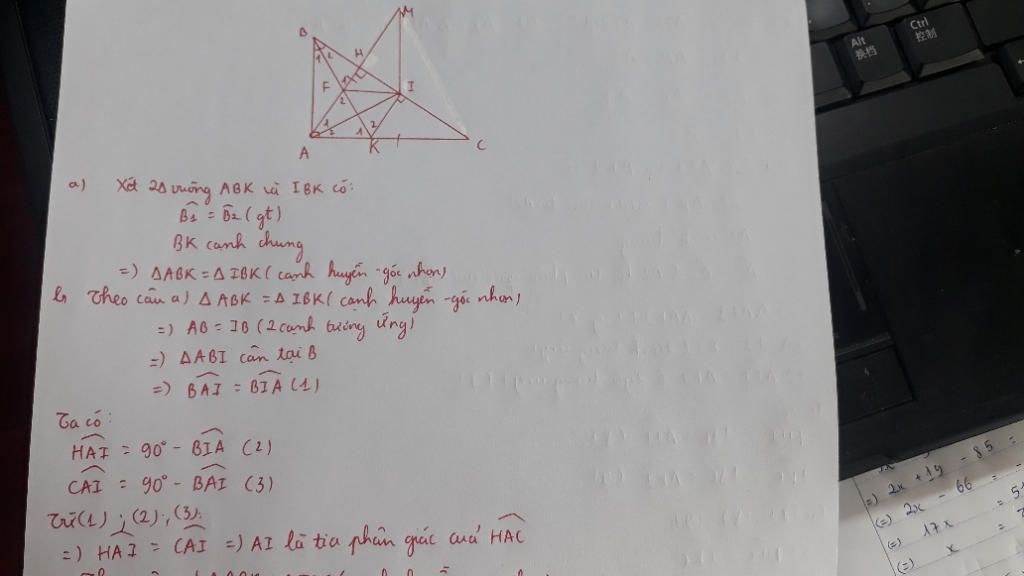 M
B
1 2
H
F
1
2
I
1 2
1 2
A
K
C
a) Xét 2Δ vuông ABK và IBK có:
B1 = B2 (gt)
BK cạnh chung
=) ΔABK = Δ IBK ( cạnh huyền - góc nhọn)
b, Theo câu a) Δ ABK = Δ IBK ( cạnh huyền - góc nhọn)
=) AB = IB ( 2 cạnh tương ứng)
=) ΔABI cân tại B
=) BAI = BIA (1)
Ta có:
HAI = 90° - BIA (2)
CAI = 90° - BAI (3)
Từ (1) ; (2) ; (3)
=) HAI = CAI =) AI là tia phân giác của HAC
Alt
换档
Ctrl
控制
=) 2x + 19 - 85 =
(=) 2x - 66 =
(=) 17x =
(=) x